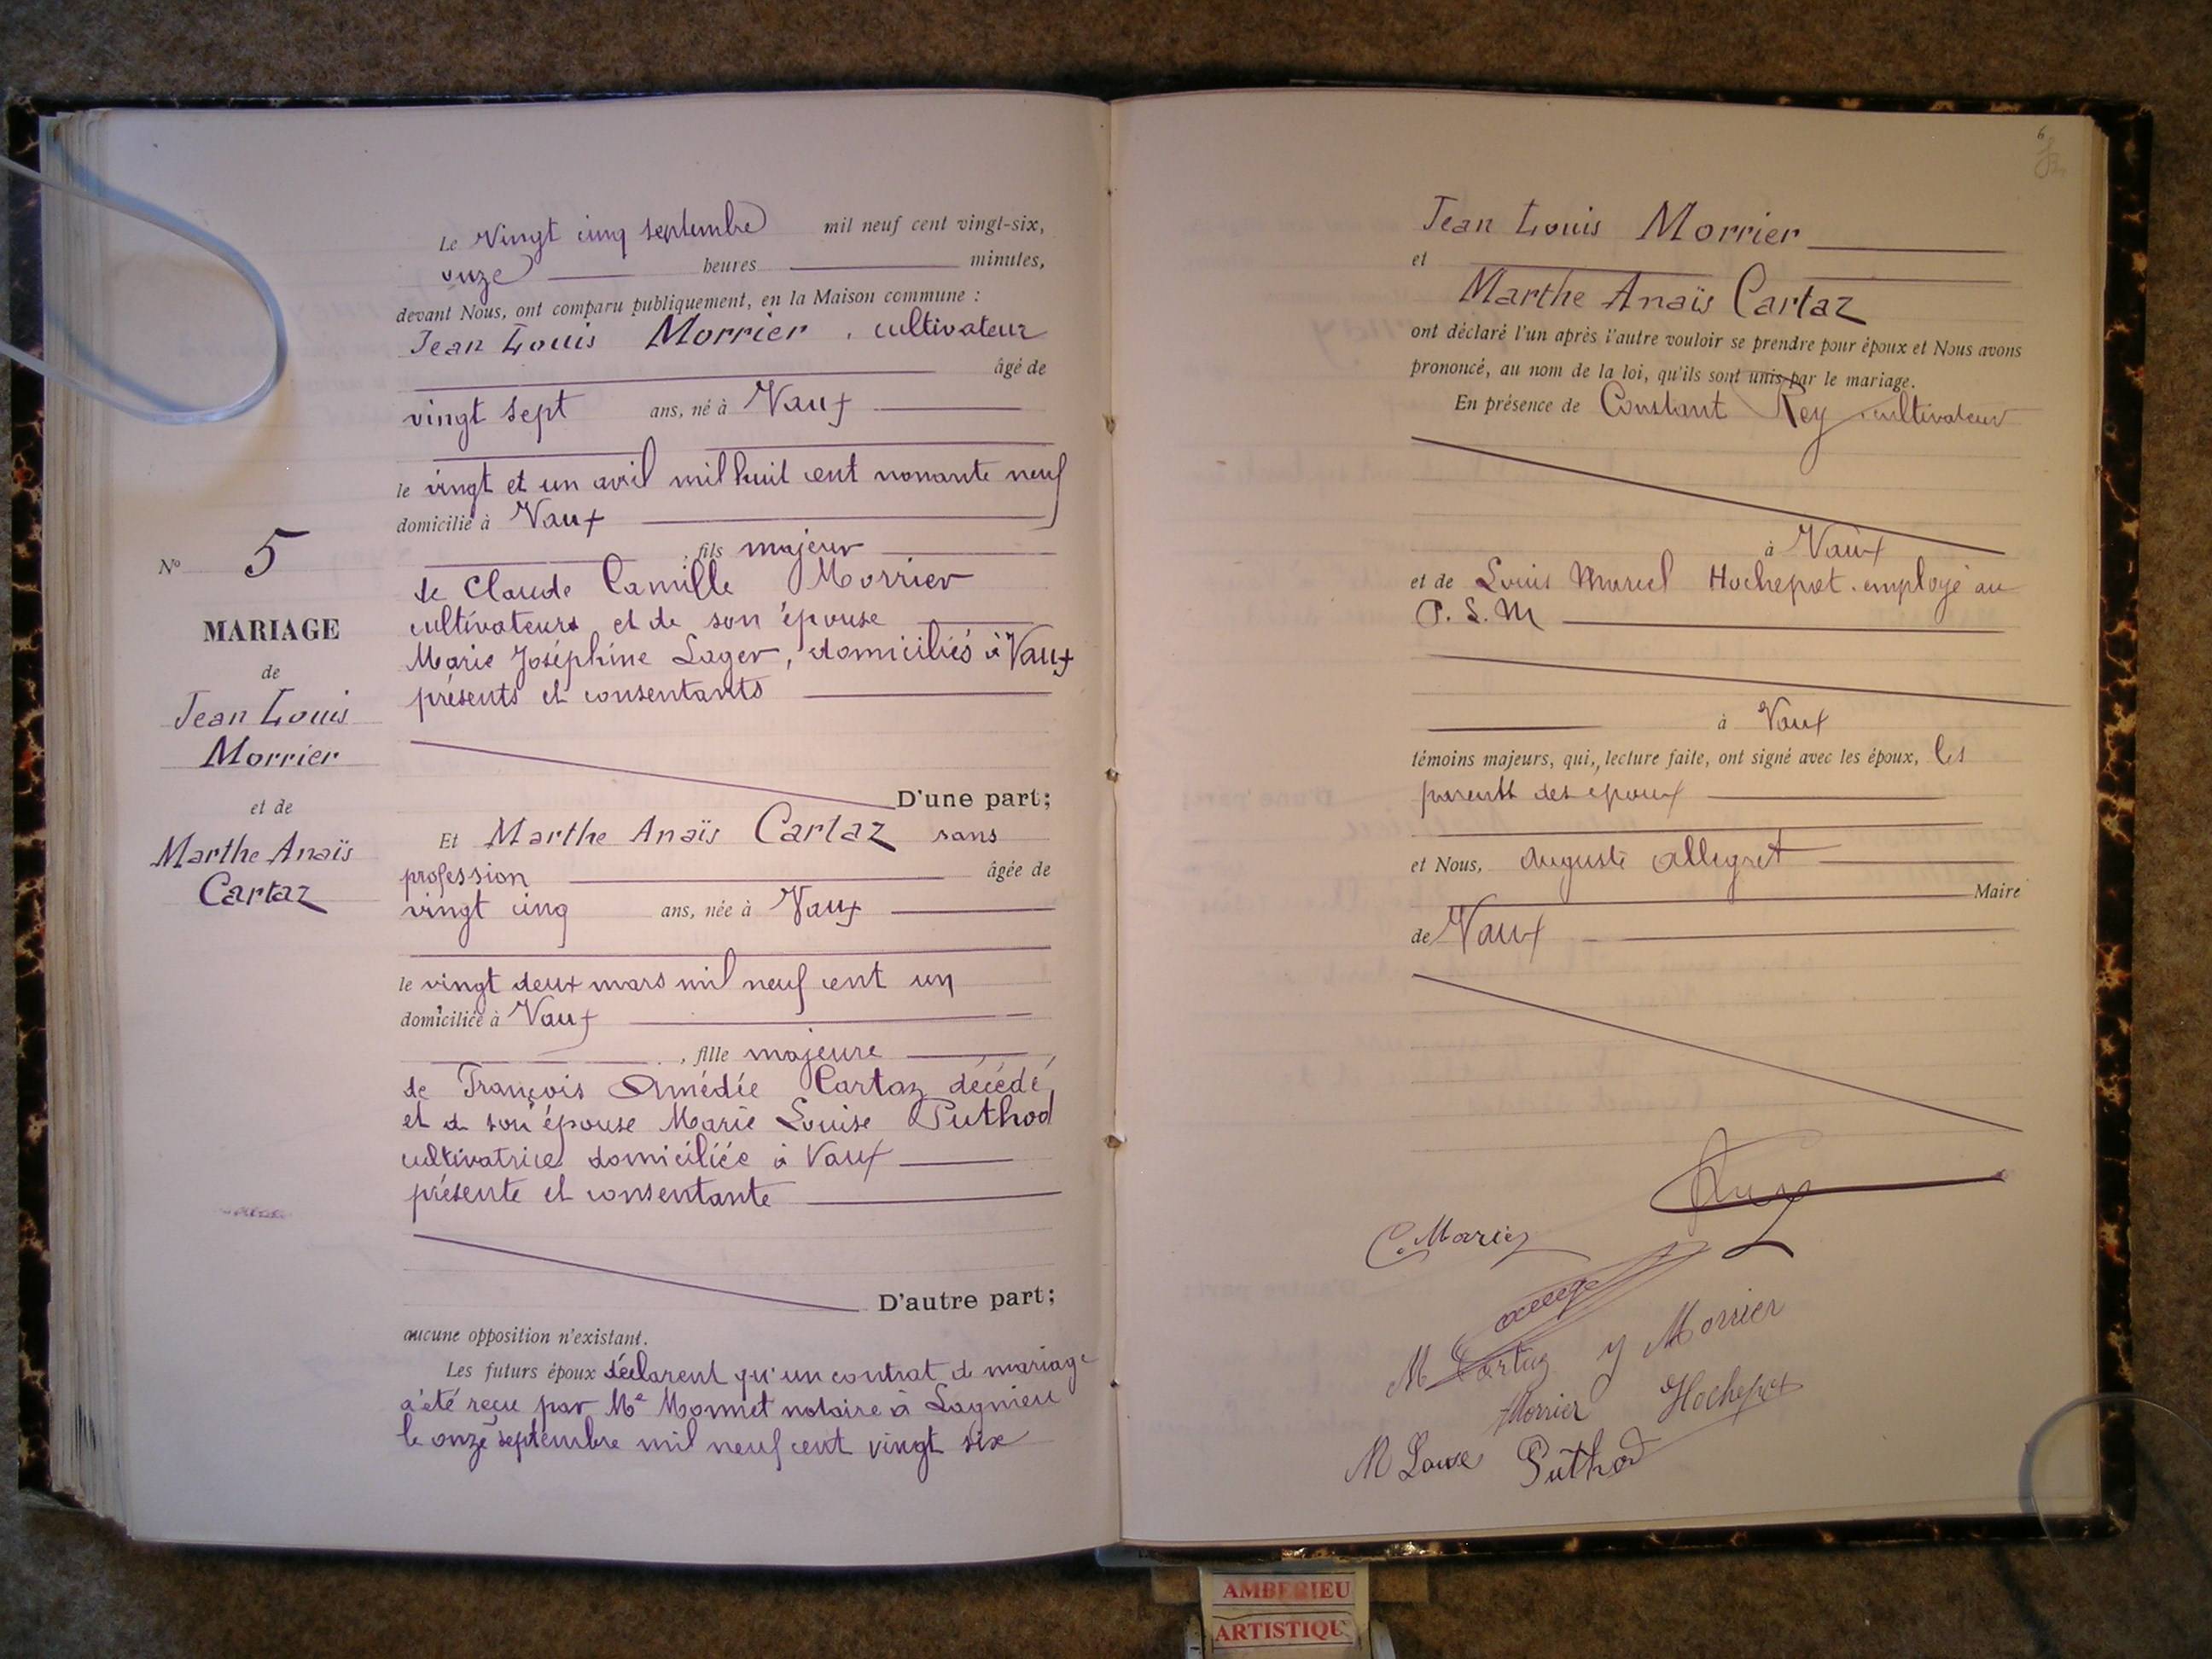 Le Vingt cinq septembre mil neuf cent vingt-six,
onze heures minutes,
devant Nous, ont comparu publiquement, en la Maison commune :
Jean Louis Morrier, cultivateur
âgé de
vingt sept ans, né à Vaux
le vingt et un avril mil huit cent nonante neuf
domicilié à Vaux
, fils majeur
de Claude Camille Morrier
cultivateurs et de son épouse
Marie Joséphine Lager, domiciliés à Vaux
présents et consentants
D'une part;
Et Marthe Anaïs Cartaz sans
profession âgée de
vingt cinq ans, née à Vaux
le vingt deux mars mil neuf cent un
domiciliée à Vaux
, fille majeure
de François Amédée Cartaz décédé
et de son épouse Marie Louise Puthod
cultivatrice domiciliée à Vaux
présente et consentante
D'autre part;
aucune opposition n'existant.
Les futurs époux déclarent qu'un contrat de mariage
a été reçu par Me Monnet notaire à Lagnieu
le onze septembre mil neuf cent vingt six
N° 5
MARIAGE
de
Jean Louis
Morrier
et de
Marthe Anaïs
Cartaz
6
Jean Louis Morrier
et
Marthe Anaïs Cartaz
ont déclaré l'un après l'autre vouloir se prendre pour époux et Nous avons
prononcé, au nom de la loi, qu'ils sont unis par le mariage.
En présence de Constant Rey cultivateur
à Vaux
et de Louis Marcel Hochepot employé au
P. L. M
à Vaux
témoins majeurs, qui, lecture faite, ont signé avec les époux, les
parents des époux
et Nous, Auguste Allegret
Maire
de Vaux
Rey
M Cartaz J Morrier
Morrier Hochepot
M Louise Puthod
AMBERIEU
ARTISTIQU